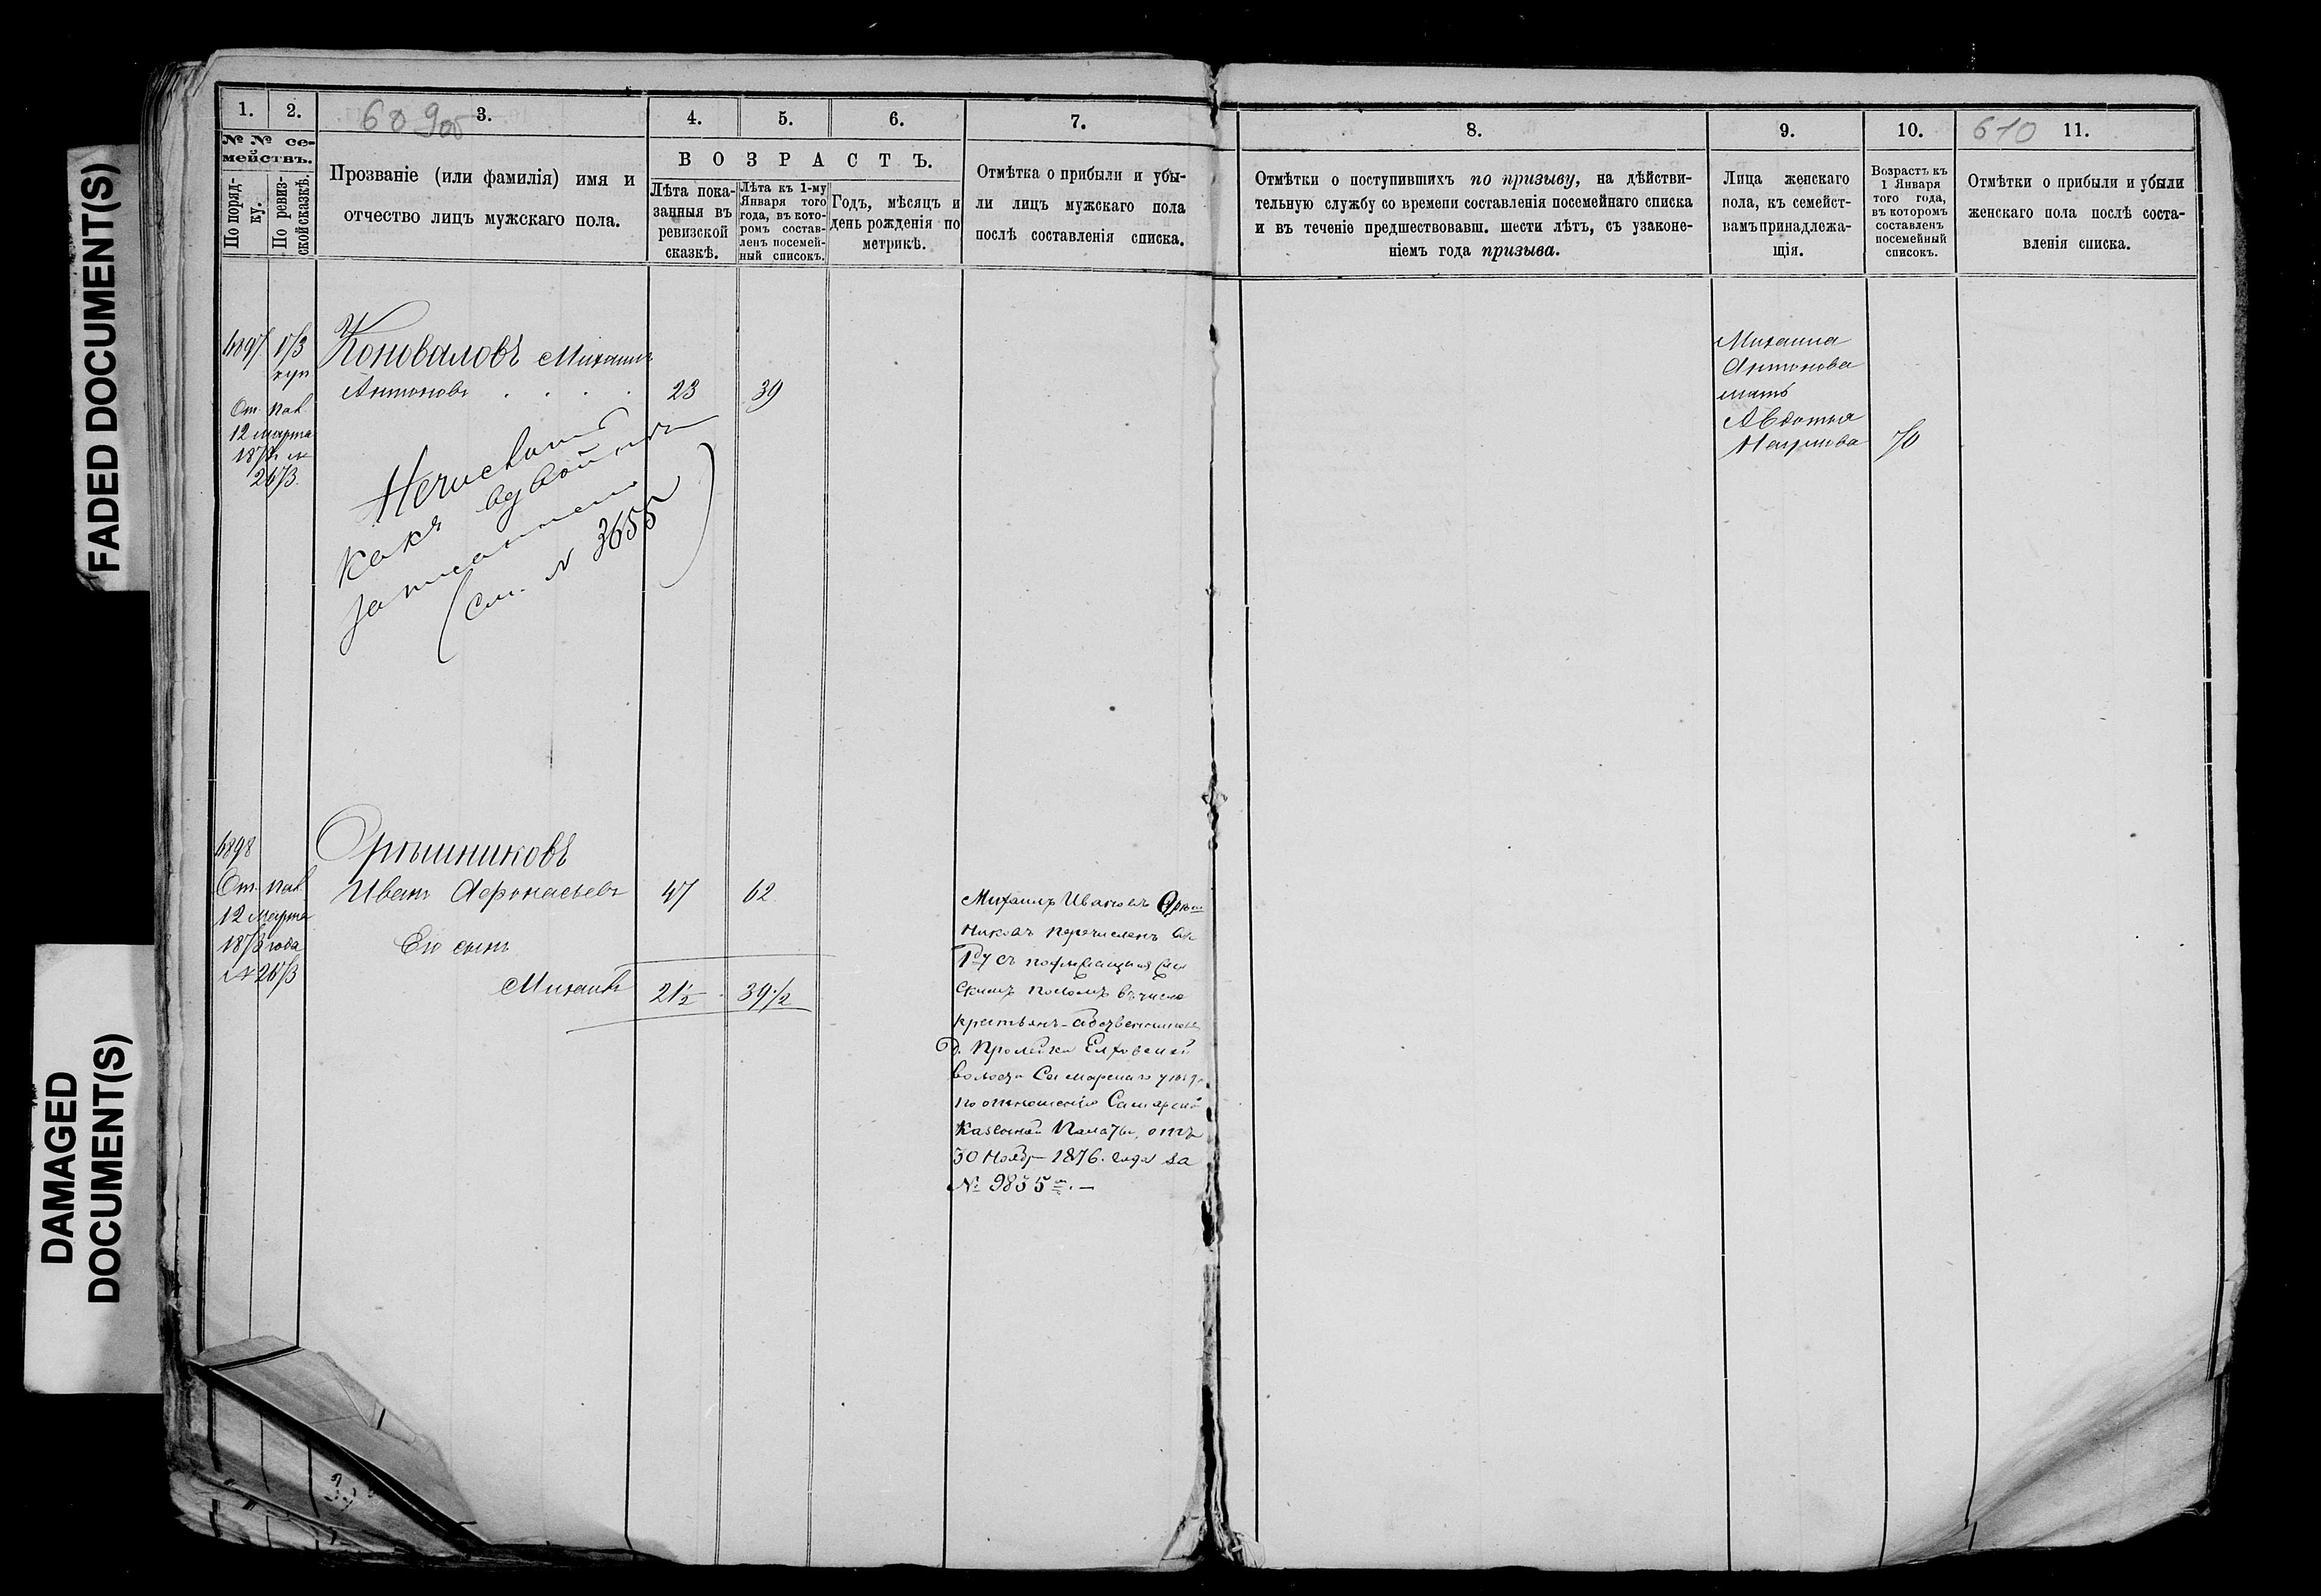 FADED DOCUMENT(S)
DAMAGED
DOCUMENT(S)
1.
2.
3.
4.
5.
6.
7.
№ № се-
мействъ.
По поряд-
ку.
По ревиз-
ской сказкѣ.
Прозваніе (или фамилія) имя и
отчество лицъ мужскаго пола.
ВОЗРАСТЪ.
Лѣта пока-
занныя въ
ревизской
сказкѣ.
Лѣта къ 1-му
Января того
года, въ кото-
ромъ состав-
ленъ посемей-
ный списокъ.
Годъ, мѣсяцъ и
день рожденія по
метрикѣ.
Отмѣтка о прибыли и убы-
ли лицъ мужскаго пола
послѣ составленія списка.
Коноваловъ Михаилъ
Антоновъ . . . . 23 39
12 марта
какъ
(См. № 3655)
Орѣшниковъ
Иванъ Афонасьевъ 47 62
Его сынъ
Михаилъ 21½ 39½
12 Марта
года
Михаилъ Ивановъ Орѣш
никовъ перечисленъ
крестьянъ-собственниковъ
волости Самарскаго уѣзда
по отношенію Самарской
Казенной Палаты, отъ
30 Ноябр 1876 года за
№ 9835
8.
9.
10.
610 11.
Отмѣтки о поступившихъ по призыву, на дѣйстви-
тельную службу со времени составленія посемейнаго списка
и въ теченіе предшествовавш. шести лѣтъ, съ узаконе-
ніемъ года призыва.
Лица женскаго
пола, къ семейст-
вамъ принадлежа-
щія.
Возрастъ къ
1 Января
того года,
въ которомъ
составленъ
посемейный
списокъ.
Отмѣтки о прибыли и убыли
женскаго пола послѣ соста-
вленія списка.
Михаила
Антонова
мать
Авдотья
70